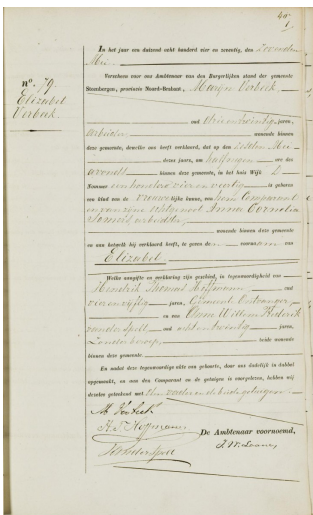 40
In het jaar een duizend acht honderd vier en zeventig, den Zevenden
Mei
Verscheen voor ons Ambtenaar van den Burgerlijken stand der gemeente
Steenbergen, provincie Noord-Brabant,
n°. 79.
Elizabet
Verbeek.
oud drie en twintig jaren,
arbeider wonende binnen
deze gemeente, dewelke ons heeft verklaard, dat op den Zesden Mei
dezes jaars, om half negen ure des
avonds binnen deze gemeente, in het huis Wijk
Nummer een honderd vier en veertig is geboren
een kind van de vrouwelijke kunne, van hem Comparant
en van zijne Echtgenoot Anna Cornelia
arbeidster,
wonende binnen deze gemeente
en aan hetzelve hij verklaard heeft, te geven den voornaam van
Elizabet
Welke aangifte en verklaring zijn geschied, in tegenwoordigheid van
Hendrik Thomas Hoffmann oud
vier en vijftig jaren, Gemeente Ontvanger
en van Willem Frederik
van der Spelt oud acht en twintig jaren,
Zonder beroep, beide wonende
binnen deze gemeente
En nadat deze tegenwoordige akte van geboorte, door ons dadelijk in dubbel
opgemaakt, en aan den Comparant en de getuigen is voorgelezen, hebben wij
dezelve geteekend met den vader en de beide getuigen
M Verbeek
H. T. Hoffmann
De Ambtenaar voornoemd,